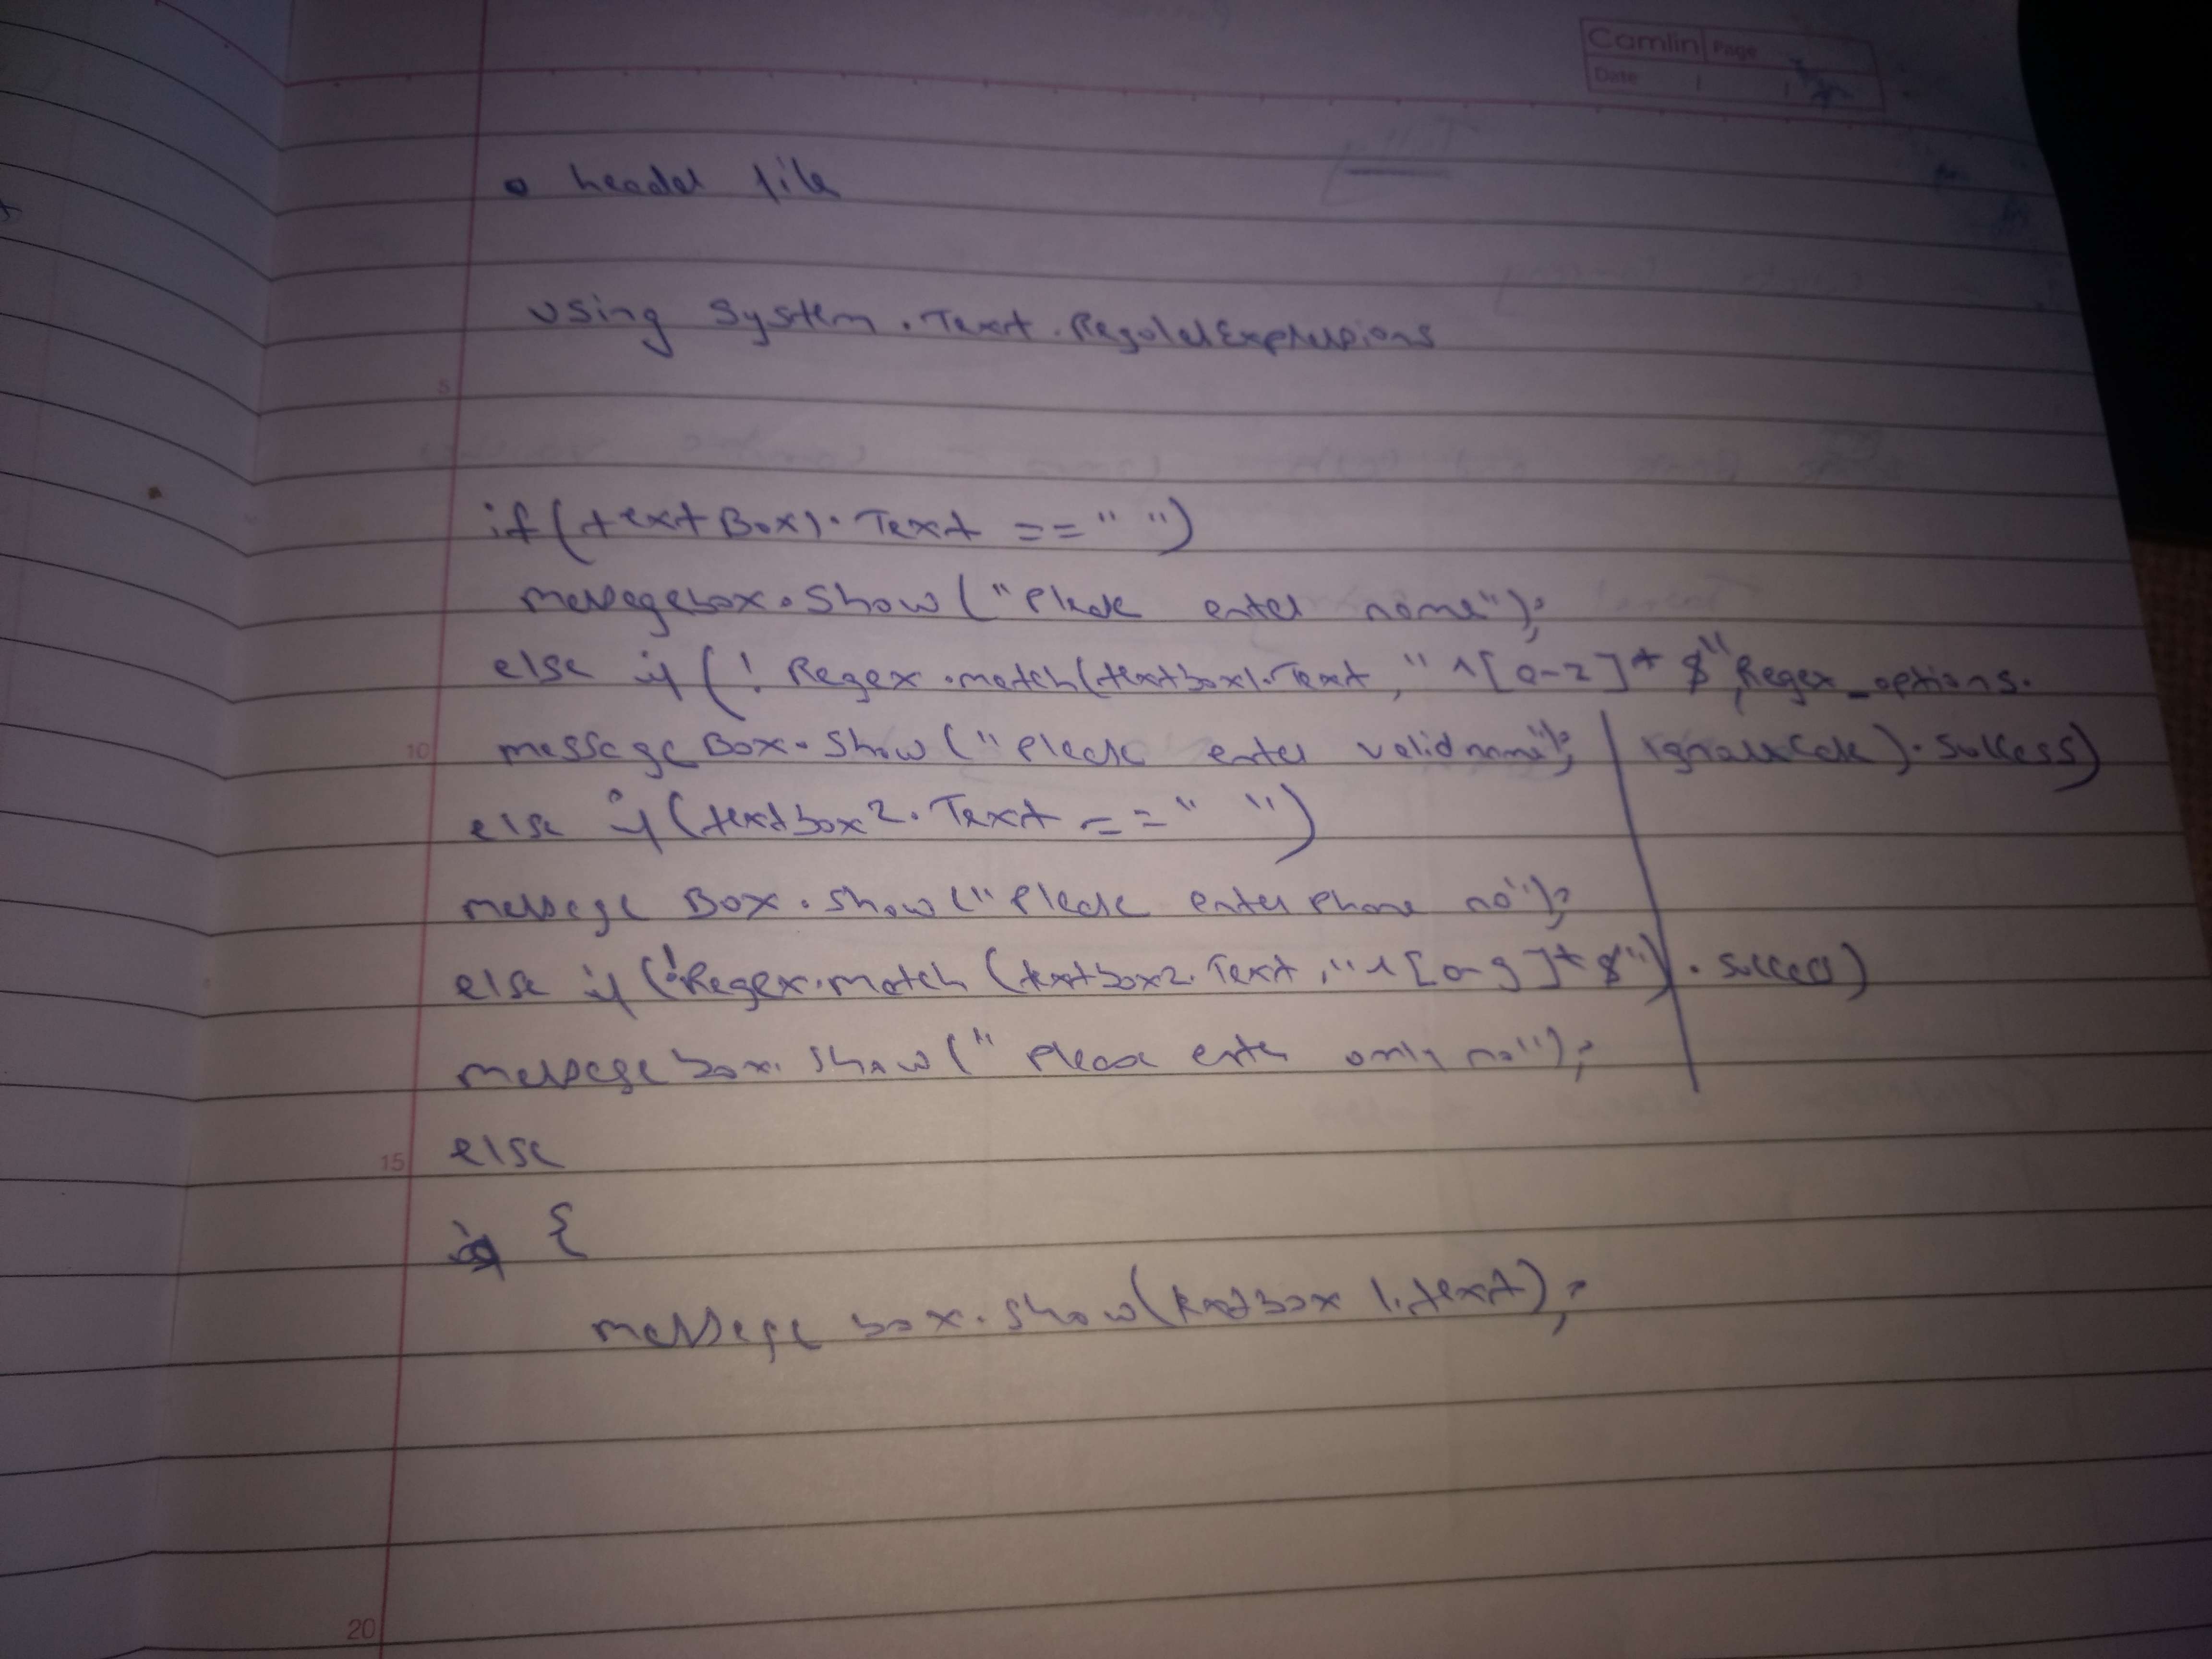 Camlin Page
Date / /
• header file
using System.Text.RegularExpressions
5
if(textBox1.Text == " ")
messagebox.Show("Please enter name");
else if(! Regex.match(textbox1.Text, "^[a-z]*$", Regex_options.
10 message Box.Show("Please enter valid name"); | ignoreCase).success)
else if(textbox2.Text == " ")
message Box.show("Please enter phone no");
else if(!Regex.match(textbox2.Text, "^[0-9]*$").success)
message box.show("Please enter only no");
15 else
{
message box.show(textbox1.text);
20